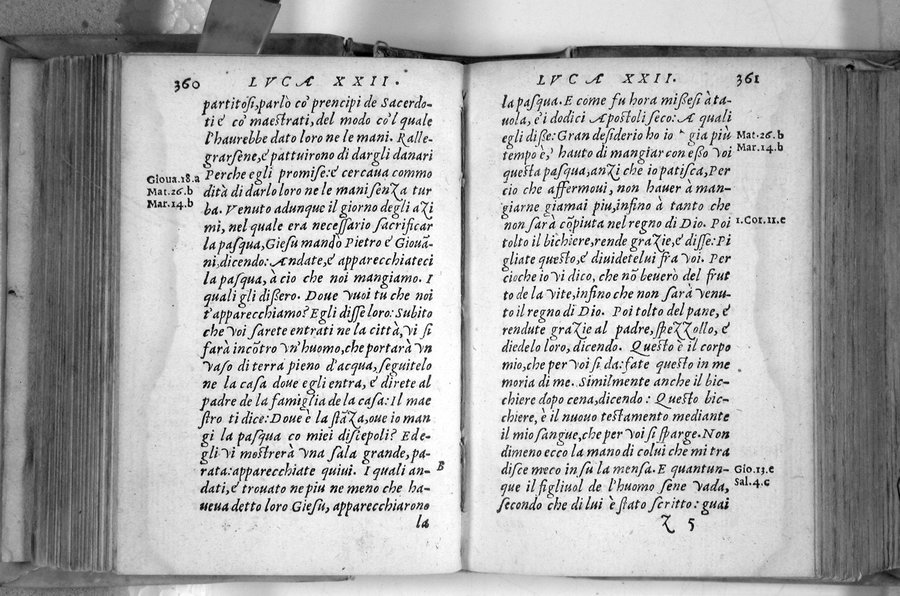 360 LVCAE XXII.
partitosi, parlò co' prencipi de Sacerdo-
ti e' co' maestrati, del modo co'l quale
l'haurebbe dato loro ne le mani. Ralle-
grarsene, e' pattuirono di dargli danari
Perche egli promise: e' cercaua commo
dità di darlo loro ne le mani senza tur
ba. Venuto adunque il giorno degli azi
mi, nel quale era necessario sacrificar
la pasqua, Giesù mandò Pietro e' Giouã-
ni, dicendo: Andate, e' apparecchiateci
la pasqua, à cio che noi mangiamo. I
quali gli dißero. Doue vuoi tu che noi
t'apparecchiamo? Egli disse loro: Subito
che voi sarete entrati ne la città, vi si
farà incõtro vn'huomo, che portarà vn
vaso di terra pieno d'acqua, seguitelo
ne la casa doue egli entra, e' direte al
padre de la famiglia de la casa: Il mae
stro ti dice: Doue è la stãza, oue io man
gi la pasqua co miei discepoli? Ed e-
gli vi mostrerà vna sala grande, pa-
rata: apparecchiate quiui. I quali an-
dati, e' trouato ne piu ne meno che ha-
ueua detto loro Giesù, apparecchiarono
la
Gioua.18.a
Mat.26.b
Mar.14.b
B
LVCAE XXII. 361
la pasqua. E come fu hora mißesi à ta-
uola, e' i dodici Apostoli seco: A quali
egli diße: Gran desiderio ho io gia più
tempo è, hauto di mangiar con eßo voi
questa pasqua, anzi che io patisca, Per
cio che affermoui, non hauer à man-
giarne giamai piu, infino à tanto che
non sarà cõpiuta nel regno di Dio. Poi
tolto il bichiere, rende grazie, e' disse: Pi
gliate questo, e' diuidetelui fra voi. Per
cioche io vi dico, che nõ beuerò del frut
to de la vite, infino che non sarà venu-
to il regno di Dio. Poi tolto del pane, e'
rendute grazie al padre, spezzollo, e'
diedelo loro, dicendo. Questo è il corpo
mio, che per voi si da: fate questo in me
moria di me. Similmente anche il bic-
chiere dopo cena, dicendo: Questo bic-
chiere, è il nuouo testamento mediante
il mio sangue, che per voi si sparge. Non
dimeno ecco la mano di colui che mi tra
disce meco in sù la mensa. E quantun-
que il figliuol de l'huomo sene vada,
secondo che di lui è stato scritto: guai
Z 5
Mat.26.b
Mar.14.b
1.Cor.11.e
Gio.13.e
Sal.4.c